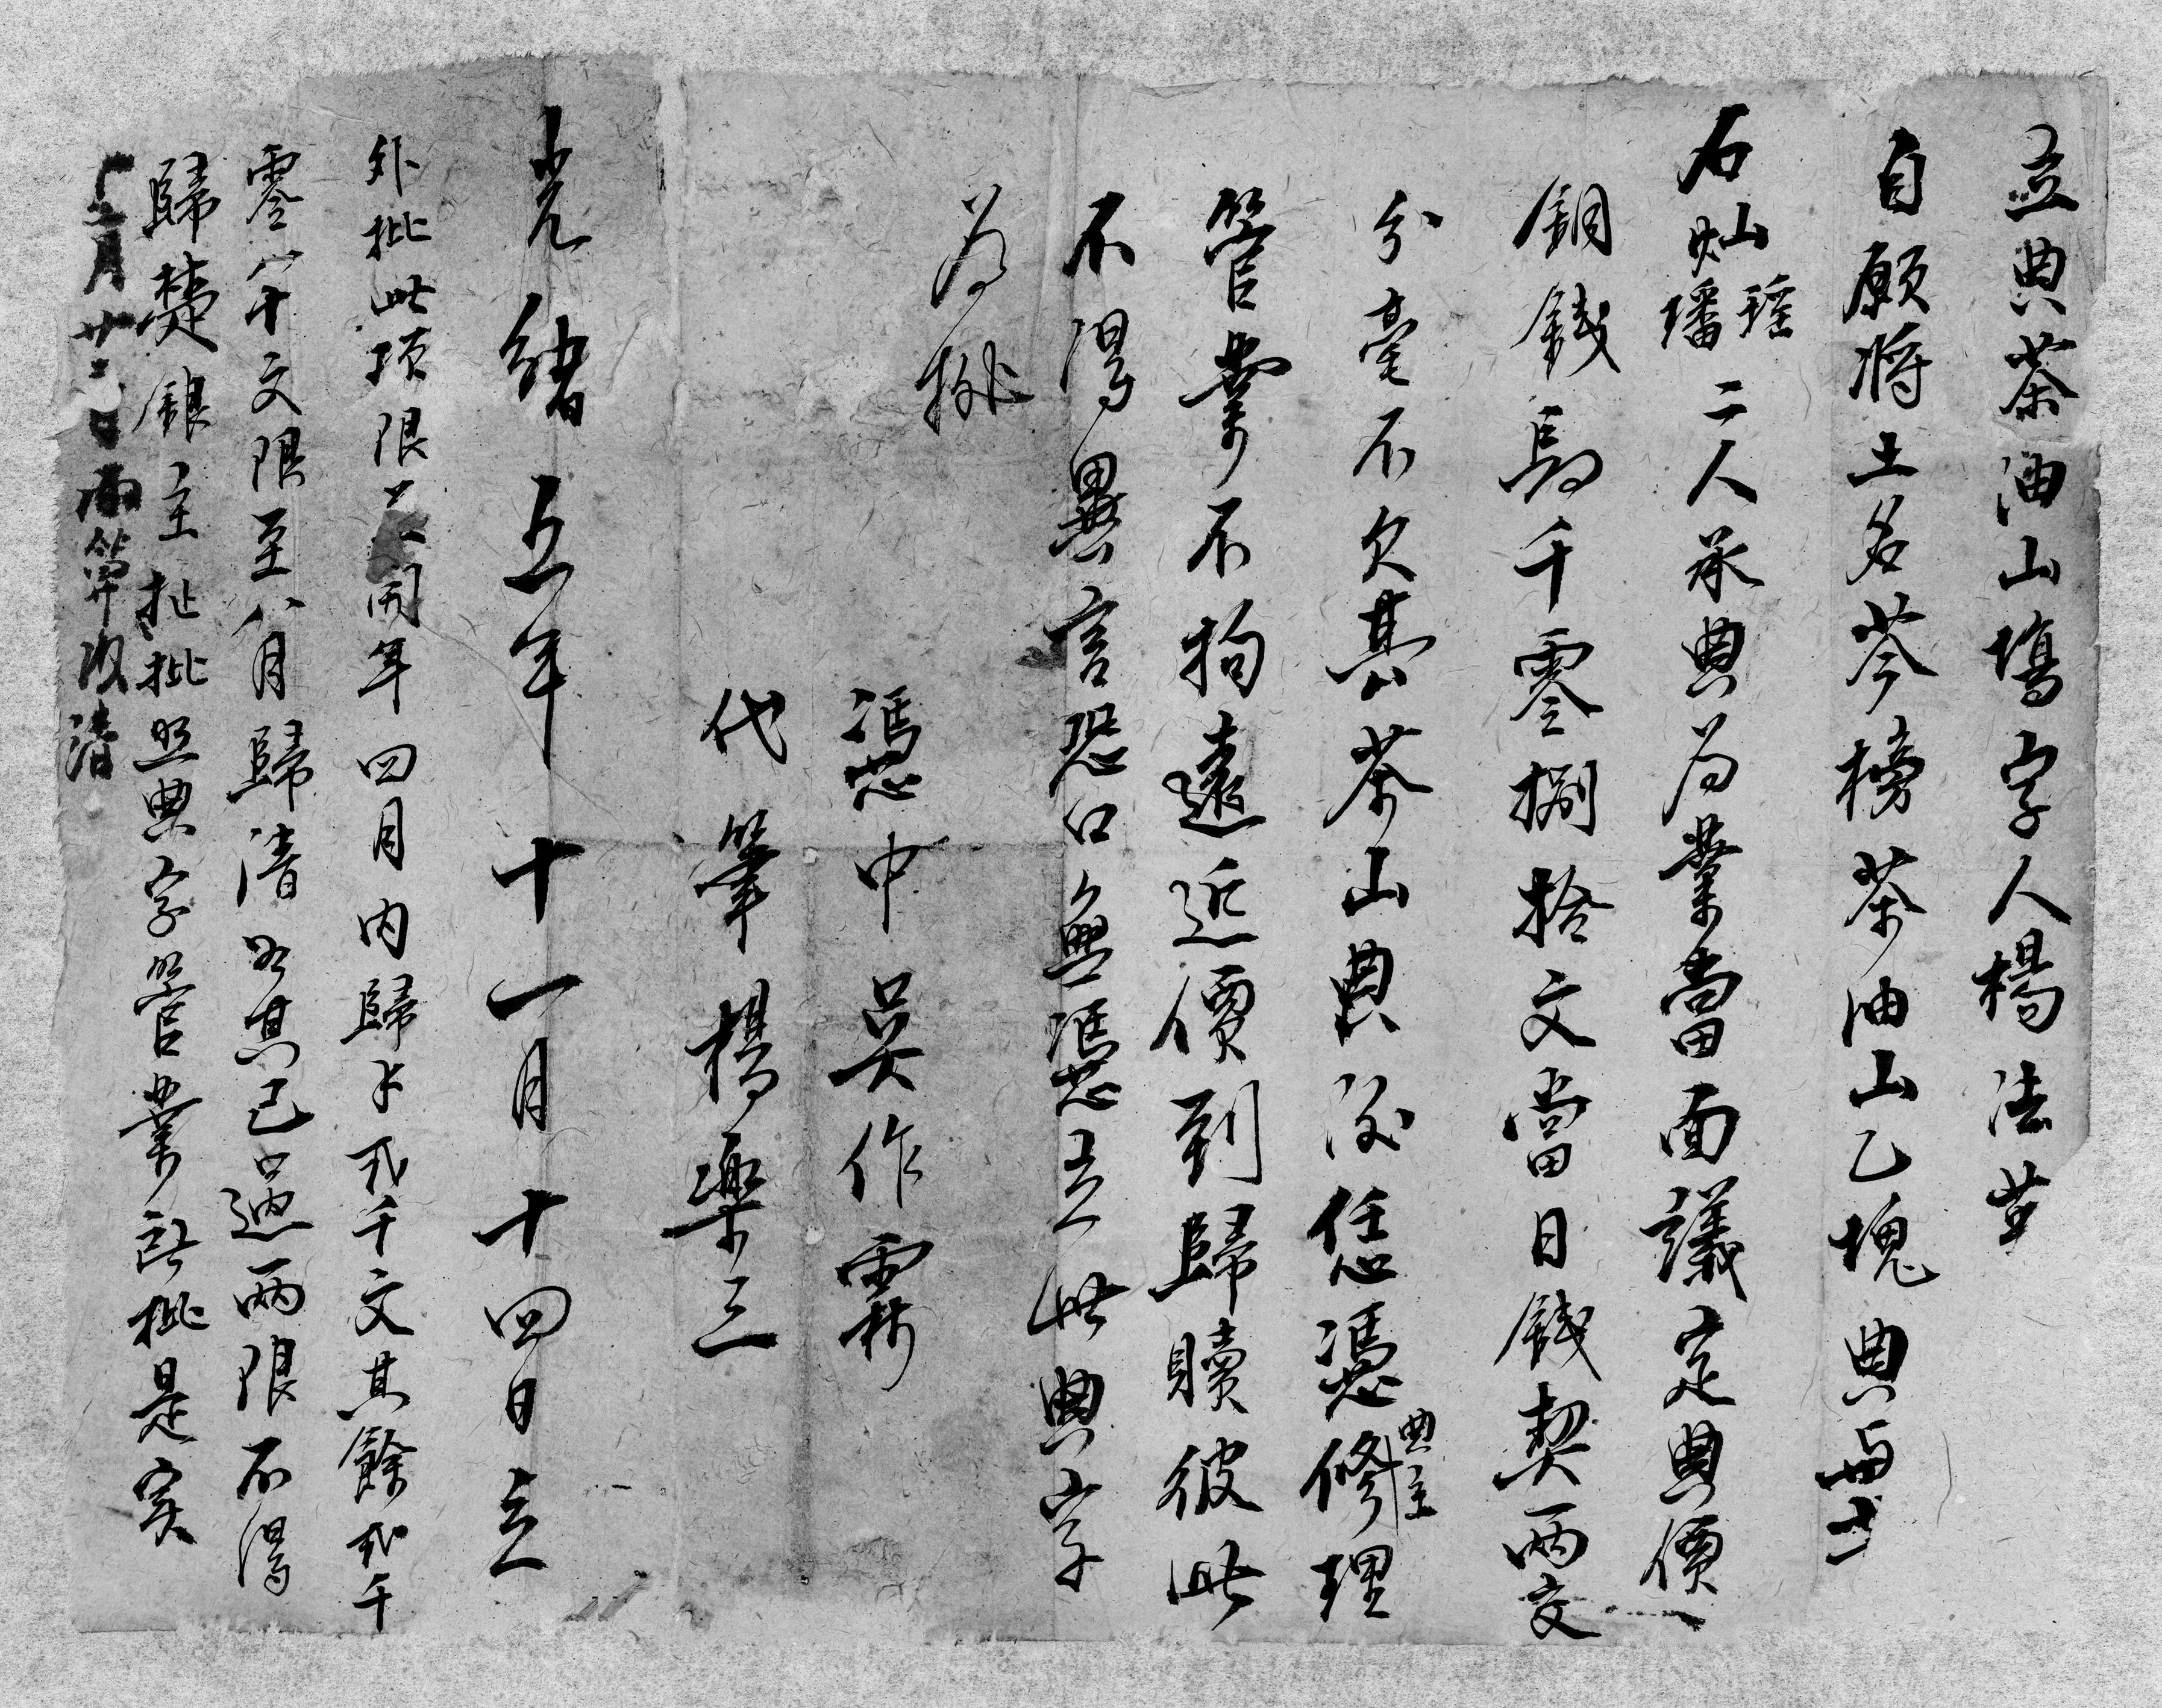 立典茶油山塲字人楊法華
自願將土名芩榜茶油山乙塊典與
石灿璠瑶二人承典為業當面議定典價
銅錢肆千零捌拾文當日錢契兩交
分毫不欠其茶山典後恁憑典主修理
管業不拘遠近價到歸贖彼此
不得異言恐口無憑立此典字
為挑
憑中吳作霖
代筆楊樂三
光緒五年十一月十四日立
外批此項限閏年四月內歸弍千文其餘弍千
零八十文限至八月歸清若其已過兩限不得
歸楚銀主扯批照典字管業所批是实
十二月廿二日兩算收清